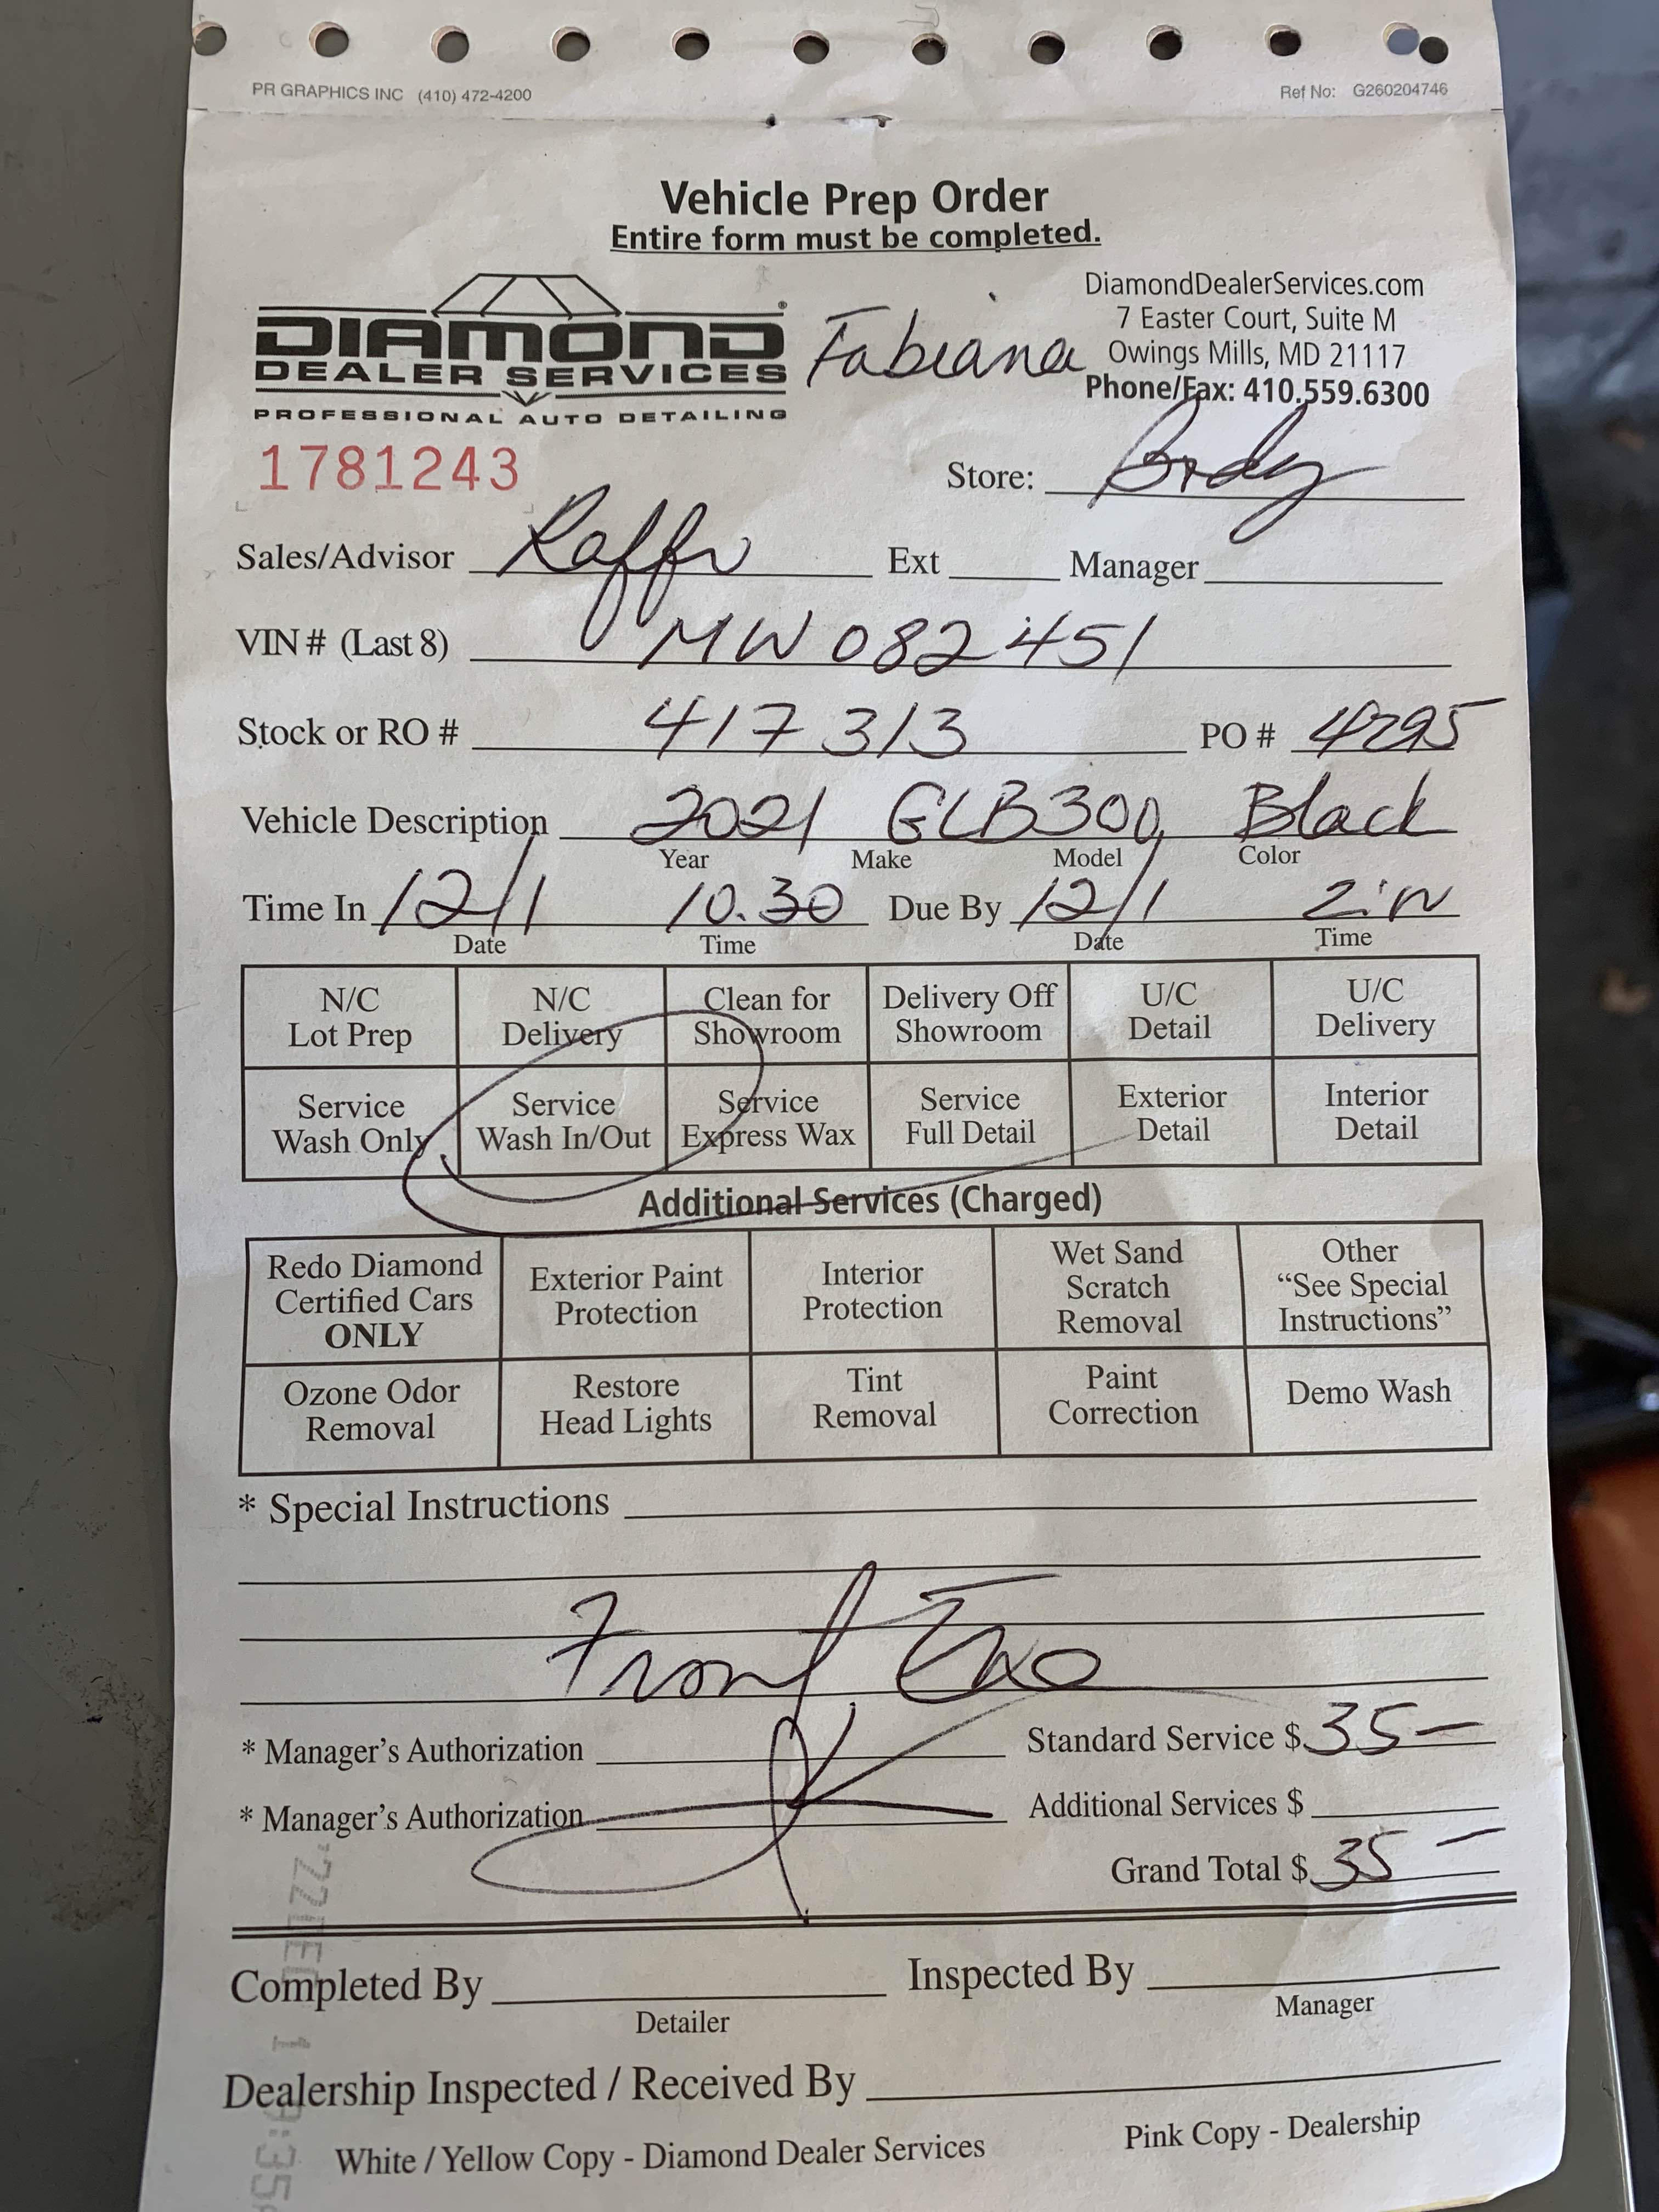 PR GRAPHICS INC (410) 472-4200 Ref No: G260204746
Vehicle Prep Order
Entire form must be completed.
DIAMOND
DEALER SERVICES
PROFESSIONAL AUTO DETAILING
Fabiana
DiamondDealerServices.com
7 Easter Court, Suite M
Owings Mills, MD 21117
Phone/Fax: 410.559.6300
1781243
Store: Body
Sales/Advisor Raffi Ext Manager
VIN # (Last 8) MW082451
Stock or RO # 417313 PO # 4295
Vehicle Description 2021 GLB300 Black
Year Make Model Color
Time In 12/1 10.30 Due By 12/1
Date Time Date Time
N/C Lot Prep N/C Delivery Clean for Showroom Delivery Off Showroom U/C Detail U/C Delivery
Service Wash Only Service Wash In/Out Service Express Wax Service Full Detail Exterior Detail Interior Detail
Additional Services (Charged)
Redo Diamond Certified Cars ONLY Exterior Paint Protection Interior Protection Wet Sand Scratch Removal Other “See Special Instructions”
Ozone Odor Removal Restore Head Lights Tint Removal Paint Correction Demo Wash
* Special Instructions
Front
* Manager's Authorization Standard Service $ 35—
* Manager's Authorization Additional Services $
Grand Total $ 35 —
Completed By Inspected By
Detailer Manager
Dealership Inspected / Received By
White / Yellow Copy - Diamond Dealer Services Pink Copy - Dealership